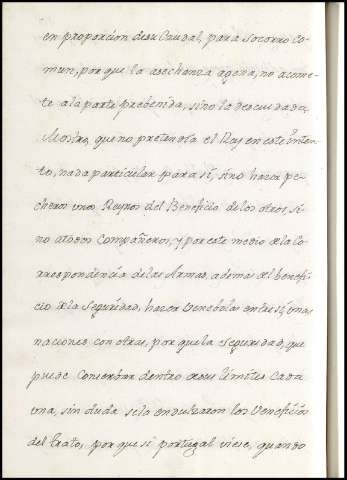 en proporcion desu Caudal, para socorro Co-
mun, por que la asechanza agena, no acome-
te ala parte prebenida, sino la descuidada,
Mostro, que no pretendia el Rey en este Inten-
to, nada particular para sí, sino hacer pe-
cheros unos Reynos del Beneficio delos otros, si-
no atodos Compañeros, y por este medio dela Co-
rrespondencia delas Armas, ademas del benefi-
cio dela seguridad, hacer Benebolas entre sí, unas
naciones con otras, por que la seguridad, que
puede Conserbar dentro desus limites Cada
una, sin duda selo endulzaron los Beneficios
del trato, por que si portugal viese, quando